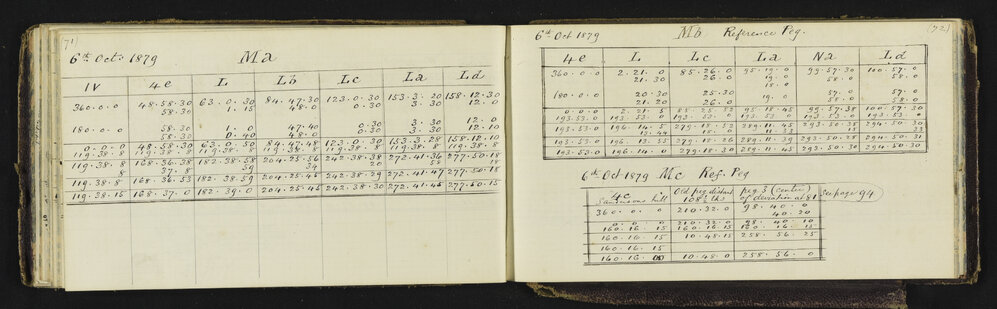 71
6th Octr 1879 Ma
IV 4e L Lb Lc La Ld
360.0.0 48.58.30 63.0.30 84.47.30 123.0.30 153.3.20 158.12.30
58.30 1.15 48.0 0.30 3.30 12.0
180.0.0 58.30 1.0 47.40 0.30 3.30 12.0
58.30 0.40 48.0 0.30 3.30 12.10
0.0.0 48.58.30 63.0.50 84.47.48 123.0.30 153.3.28 158.12.10
119.38.8 119.38.8 119.38.8 119.38.8 119.38.8 119.38.8
119.38.8 168.36.38 182.38.58 204.25.56 242.38.38 272.41.36 277.50.18
8 37.8 59 34 20 18
119.38.8 168.36.53 182.38.59 204.25.45 242.38.29 272.41.47 277.50.18
119.38.15 168.37.0 182.39.0 204.25.45 242.38.30 272.41.45 277.50.15
6th Oct 1879 Mb Reference Peg. (72)
4e L Lc La Na Ld
360.0.0 2.21.0 85.26.0 95.19.0 99.57.30 100.57.0
21.30 26.0 19.0 58.0 58.0
180.0.0 20.30 25.30 57.0 57.0
21.20 26.0 19.0 58.0 58.0
0.0.0 2.21.5 85.25.53 95.18.45 99.57.38 100.57.30
193.53.0 193.53.0 193.53.0 193.53.0 193.53.0 193.53.0
193.53.0 196.14.5 279.18.53 289.11.45 293.50.38 294.50.30
193.53.0 196.13.25 279.18.26 289.11.39 293.50.25 294.50.31
193.53.0 196.14.0 279.18.30 289.11.45 293.50.30 294.50.30
6th Oct 1879 Mc Ref. Peg
4c Old peg distant peg 3 (center)
hill 108½ lks of deviation at 81 See page 94
360.0.0 210.32.0 98.40.0
40.20
0.0.0 210.32.0 98.40.10
160.16.15 160.16.15 160.16.15
160.16.15 10.48.15 258.56.25
160.16.15
160.16.00 10.48.0 258.56.0